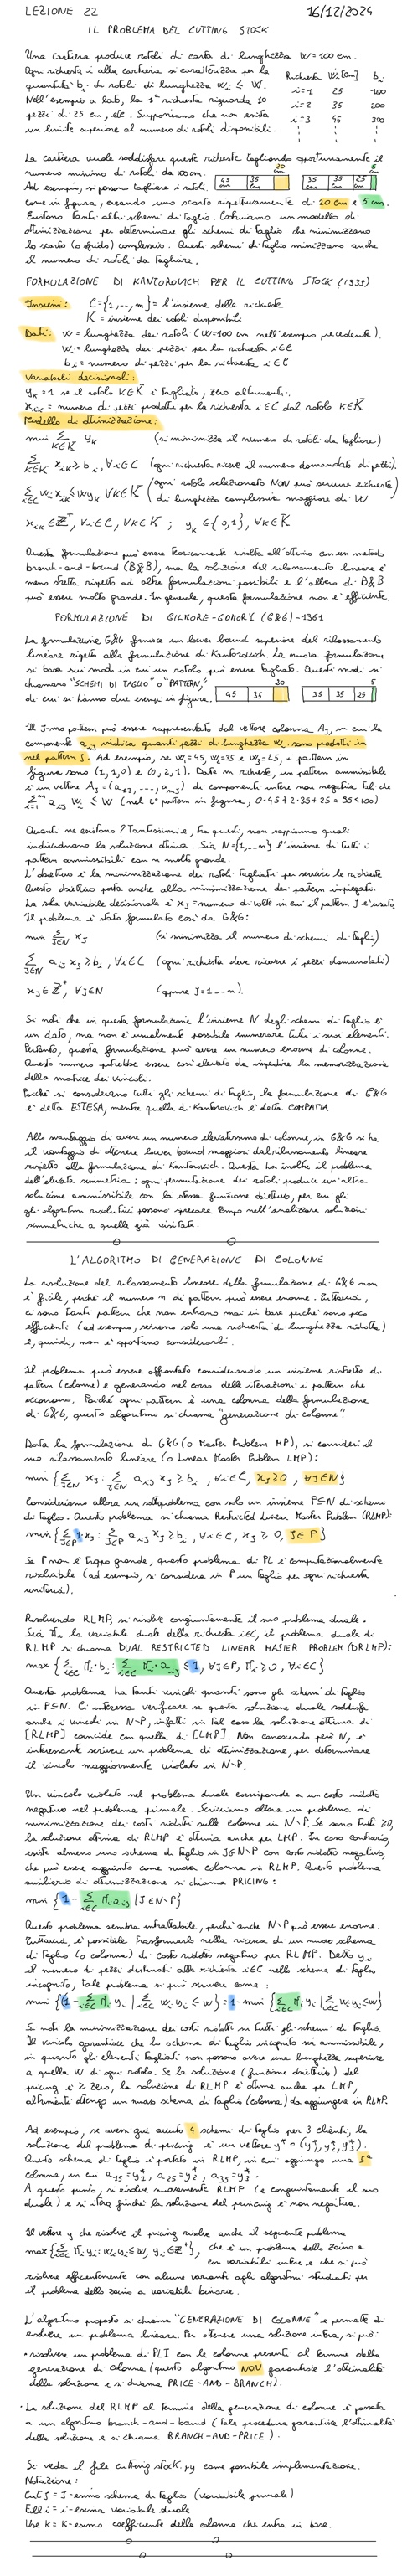 LEZIONE 22 16/12/2024
IL PROBLEMA DEL CUTTING STOCK
Una cartiera produce rotoli di carta di lunghezza W=100 cm.
Ogni richiesta i alla cartiera si caratterizza per la
quantità bi di rotoli di lunghezza wi ≤ W.
Nell'esempio a lato, la 1ª richiesta riguarda 10
pezzi di 25 cm, etc. Supponiamo che non esista
un limite superiore al numero di rotoli disponibili.
Richiesta Wi[cm] bi
i=1 25 100
i=2 35 200
i=3 45 300
La cartiera vuole soddisfare queste richieste tagliando opportunamente il
numero minimo di rotoli da 100cm.
Ad esempio, si possono tagliare i rotoli
come in figura, creando uno scarto rispettivamente di 20 cm e 5 cm.
45 cm 35 cm 20 cm
35 cm 35 cm 25 cm 5 cm
Esistono tanti altri schemi di taglio. Costruiamo un modello di
ottimizzazione per determinare gli schemi di taglio che minimizzano
lo scarto (o sfrido) complessivo. Questi schemi di taglio minimizzano anche
il numero di rotoli da tagliare.
FORMULAZIONE DI KANTOROVICH PER IL CUTTING STOCK (1939)
Insiemi: C={1,..,n}= l'insieme delle richieste
K = insieme dei rotoli disponibili
Dati: W = lunghezza dei rotoli (W=100 cm nell'esempio precedente).
Wi = lunghezza dei pezzi per la richiesta i∈C
bi = numero di pezzi per la richiesta i∈C
Variabili decisionali:
yK = 1 se il rotolo K∈K è tagliato, zero altrimenti.
xiK = numero di pezzi prodotti per la richiesta i∈C dal rotolo K∈K.
Modello di ottimizzazione:
min Σ K∈K yK (si minimizza il numero di rotoli da tagliare)
Σ K∈K xiK ≥ bi, ∀i∈C (ogni richiesta riceve il numero domandato di pezzi).
Σ i∈C wi xiK ≤ W yK ∀K∈K (ogni rotolo selezionato NON può servire richieste
di lunghezza complessiva maggiore di W
xiK ∈ Z+, ∀i∈C, ∀K∈K ; yK ∈ {0,1}, ∀K∈K
Questa formulazione può essere teoricamente risolta all'ottimo con un metodo
branch-and-bound (B&B), ma la soluzione del rilassamento lineare è
meno stretta rispetto ad altre formulazioni possibili e l'albero di B&B
può essere molto grande. In generale, questa formulazione non è efficiente.
FORMULAZIONE DI GILMORE-GOMORY (G&G) - 1961
La formulazione G&G fornisce un lower bound superiore del rilassamento
lineare rispetto alla formulazione di Kantorovich. La nuova formulazione
si basa sui modi in cui un rotolo può essere tagliato. Questi modi si
chiamano "SCHEMI DI TAGLIO" o "PATTERN,"
di cui si hanno due esempi in figura.
45 35 20
35 35 25 5
Il J-mo pattern può essere rappresentato dal vettore colonna AJ, in cui la
componente aij indica quanti pezzi di lunghezza wi sono prodotti in
nel pattern J. Ad esempio, se w1=45, w2=35 e w3=25, i pattern in
figura sono (1,1,0) e (0,2,1). Date m richieste, un pattern ammissibile
è un vettore AJ=(a1J,...,amJ) di componenti intere non negative tal che
Σ i=1 m aij wi ≤ W (nel 2° pattern in figura, 0·45+2·35+25 = 95<100)
Quanti ne esistono? Tantissimi e, fra questi, non sappiamo quali
individuano la soluzione ottima. Sia N={1,..n} l'insieme di tutti i
pattern ammissibili con n molto grande.
L'obiettivo è la minimizzazione dei rotoli tagliati per servire le richieste.
Questo obiettivo porta anche alla minimizzazione dei pattern impiegati.
La sola variabile decisionale è xJ = numero di volte in cui il pattern J è usato.
Il problema è stato formulato così da G&G:
min Σ J∈N xJ (si minimizza il numero di schemi di taglio)
Σ J∈N aij xJ ≥ bi, ∀i∈C (ogni richiesta deve ricevere i pezzi domandati)
xJ ∈ Z+, ∀J∈N (oppure J=1...n).
Si noti che in questa formulazione l'insieme N degli schemi di taglio è
un dato, ma non è usualmente possibile enumerare tutti i suoi elementi.
Pertanto, questa formulazione può avere un numero enorme di colonne.
Questo numero potrebbe essere così elevato da impedire la memorizzazione
della matrice dei vincoli.
Poiché si considerano tutti gli schemi di taglio, la formulazione di G&G
è detta ESTESA, mentre quella di Kantorovich è detta COMPATTA.
Allo svantaggio di avere un numero elevatissimo di colonne, in G&G si ha
il vantaggio di ottenere lower bound maggiori dal rilassamento lineare
rispetto alla formulazione di Kantorovich. Questa ha inoltre il problema
dell'elevata simmetria: ogni permutazione dei rotoli produce un'altra
soluzione ammissibile con la stessa funzione obiettivo, per cui gli
gli algoritmi risolutivi possono sprecare tempo nell'analizzare soluzioni
simmetriche a quelle già visitate.
L'ALGORITMO DI GENERAZIONE DI COLONNE
La risoluzione del rilassamento lineare della formulazione di G&G non
è facile, perché il numero n di pattern può essere enorme. Tuttavia,
ci sono tanti pattern che non entrano mai in base perché sono poco
efficienti (ad esempio, servono solo una richiesta di lunghezza ridotta)
e, quindi, non è opportuno considerarli.
Il problema può essere affrontato considerando un insieme ristretto di
pattern (colonne) e generando nel corso delle iterazioni i pattern che
occorrono. Poiché ogni pattern è una colonna della formulazione
di G&G, questo algoritmo si chiama "generazione di colonne".
Data la formulazione di G&G (o Master Problem MP), si consideri il
suo rilassamento lineare (o Linear Master Problem LMP):
min {Σ J∈N xJ : Σ J∈N aij xJ ≥ bi, ∀i∈C, xJ≥0, ∀J∈N}
Consideriamo allora un sottoproblema con solo un insieme P⊆N di schemi
di taglio. Questo problema si chiama Restricted Linear Master Problem (RLMP):
min {Σ J∈P 1·xJ : Σ J∈P aij xJ ≥ bi, ∀i∈C, xJ ≥ 0, J∈P}
Se P non è troppo grande, questo problema di PL è computazionalmente
risolubile (ad esempio, si considera in P un taglio per ogni richiesta
unitaria).
Risolvendo RLMP, si risolve congiuntamente il suo problema duale.
Sia πi la variabile duale della richiesta i∈C, il problema duale di
RLMP si chiama DUAL RESTRICTED LINEAR MASTER PROBLEM (DRLMP):
max {Σ i∈C πi·bi : Σ i∈C πi·aij ≤ 1, ∀J∈P, πi≥0, ∀i∈C}
Questo problema ha tanti vincoli quanti sono gli schemi di taglio
in P⊆N. Ci interessa verificare se questa soluzione duale soddisfa
anche i vincoli in N\P, infatti in tal caso la soluzione ottima di
[RLMP] coincide con quella di [LMP]. Non conoscendo però N, è
interessante scrivere un problema di ottimizzazione, per determinare
il vincolo maggiormente violato in N\P.
Un vincolo violato nel problema duale corrisponde a un costo ridotto
negativo nel problema primale. Scriviamo allora un problema di
minimizzazione dei costi ridotti sulle colonne in N\P. Se sono tutti ≥0,
la soluzione ottima di RLMP è ottima anche per LMP. In caso contrario,
esiste almeno uno schema di taglio in J∈N\P con costo ridotto negativo,
che può essere aggiunto come nuova colonna in RLMP. Questo problema
ausiliario di ottimizzazione si chiama PRICING:
min {1 - Σ i∈C πi aij | J∈N\P}
Questo problema sembra intrattabile, perché anche N\P può essere enorme.
Tuttavia, è possibile trasformarlo nella ricerca di un nuovo schema
di taglio (o colonna) di costo ridotto negativo per RLMP. Detto yi
il numero di pezzi destinati alla richiesta i∈C nello schema di taglio
incognito, tale problema si può scrivere come:
min {1 - Σ i∈C πi yi | Σ i∈C wi yi ≤ W} = 1 - min {Σ i∈C πi yi | Σ wi yi ≤ W}
Si noti la minimizzazione dei costi ridotti su tutti gli schemi di taglio.
Il vincolo garantisce che lo schema di taglio incognito sia ammissibile,
in quanto gli elementi tagliati non possono avere una lunghezza superiore
a quella W di ogni rotolo. Se la soluzione (funzione obiettivo) del
pricing è ≥ zero, la soluzione di RLMP è ottima anche per LMP,
altrimenti ottengo un nuovo schema di taglio (colonna) da aggiungere in RLMP.
Ad esempio, se aveva già avuto 4 schemi di taglio per 3 clienti, la
soluzione del problema di pricing è un vettore y*=(y1*,y2*,y3*).
Questo schema di taglio è portato in RLMP, in cui aggiungo una 5ª
colonna, in cui a15=y1*, a25=y2*, a35=y3*.
A questo punto, si risolve nuovamente RLMP (e congiuntamente il suo
duale) e si itera finché la soluzione del pricing è non negativa.
Il vettore y che risolve il pricing risolve anche il seguente problema
max {Σ i∈C πi yi : wi yi ≤ W, yi∈Z+}, che è un problema dello zaino a
con variabili intere e che si può
risolvere efficientemente con alcune varianti agli algoritmi studiati per
il problema dello zaino a variabili binarie.
L'algoritmo proposto si chiama "GENERAZIONE DI COLONNE" e permette di
risolvere un problema lineare. Per ottenere una soluzione intera, si può:
• risolvere un problema di PLI con le colonne presenti al termine della
generazione di colonna (questo algoritmo NON garantisce l'ottimalità
della soluzione e si chiama PRICE-AND-BRANCH).
• La soluzione del RLMP al termine della generazione di colonne è passata
a un algoritmo branch-and-bound (tale procedura garantisce l'ottimalità
della soluzione e si chiama BRANCH-AND-PRICE).
Si veda il file cutting stock.py come possibile implementazione.
Notazione:
Cut J = J-esimo schema di taglio (variabile primale)
Ell i = i-esima variabile duale
Use K = K-esimo coefficiente della colonna che entra in base.